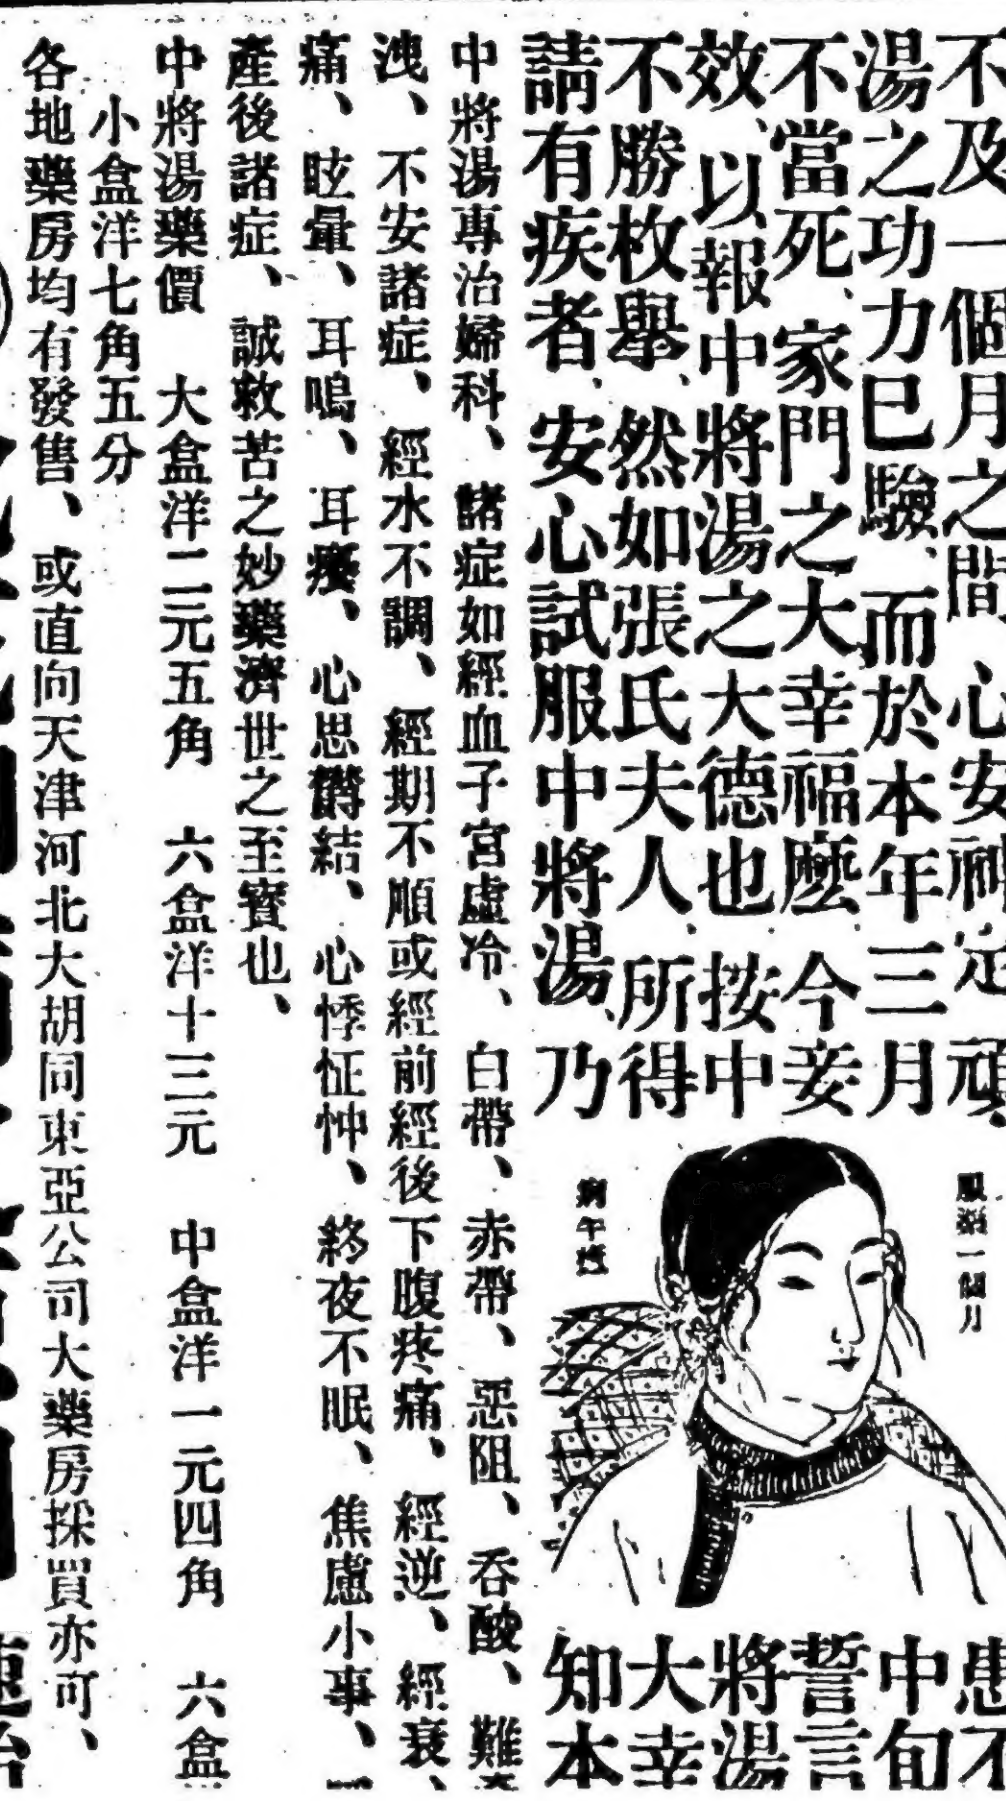 不及一個月之間、心安神定、頑
湯之功力巳驗、而於本年三月
不當死、家門之大幸福麽、今妾
效、以報中將湯之大德也、按中
不勝枚舉、然如張氏夫人、所得
請有疾者、安心試服中將湯、乃
服藥一個月
患不
中旬
誓言
將湯
大幸
知本
中將湯專治婦科、諸症如經血子宮虛冷、白帶、赤帶、惡阻、吞酸、難
洩、不安諸症、經水不調、經期不順或經前經後下腹疼痛、經逆、經衰、
痛、眩暈、耳鳴、耳癢、心思鬱結、心悸怔忡、終夜不眠、焦慮小事、
產後諸症、誠救苦之妙藥濟世之至寶也、
中將湯藥價　大盒洋二元五角　六盒洋十三元　中盒洋一元四角　六盒
小盒洋七角五分
各地藥房均有發售、或直向天津河北大胡同東亞公司大藥房採買亦可、